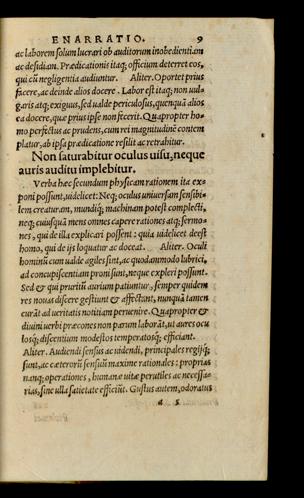 ENARRATIO. 9
ac laborem solum lucrari ob auditorum inobedientiam
ac desidiam. Prædicationis itaq; officium deterret eos,
qui cũ negligentia audiuntur. Aliter. Oportet prius
facere, ac deinde alios docere. Labor est itaq; non uul-
garis atq; exiguus, sed ualde periculosus, quenquã alios
ea docere, quæ prius ipse non fecerit. Quapropter ho-
mo perfectus ac prudens, cum rei magnitudinẽ contem
platur, ab ipsa prædicatione resilit ac retrahitur.
Non saturabitur oculus uisu, neque
auris auditu implebitur.
Verba hæc secundum physicam rationem ita ex-
poni possunt, uidelicet: Neq; oculus uniuersam sensibi-
lem creaturam, mundiq; machinam potest complecti,
neq; cuiusquã mens omnes capere rationes atq; sermo-
nes, qui de illa explicari possent: quia uidelicet deest
homo, qui de ijs loquatur ac doceat. Aliter. Oculi
hominũ cum ualde agiles sint, ac quodammodo lubrici,
ad concupiscentiam proni sunt, neque expleri possunt.
Sed & qui pruritũ aurium patiuntur, semper quidem
res nouas discere gestiunt & affectant, nunquã tamen
curãt ad ueritatis notitiam peruenire. Quapropter &
diuini uerbi præcones non parum laborãt, ut aures ocu
losq; discentium modestos temperatosq; efficiant.
Aliter. Audiendi sensus ac uidendi, principales regijq;
sunt, ac cæterorũ sensuũ maxime rationales: proprias
nanq; operationes, humanæ uitæ perutiles ac necessa-
rias, sine ulla satietate efficiũt. Gustus autem, odoratus
a 5